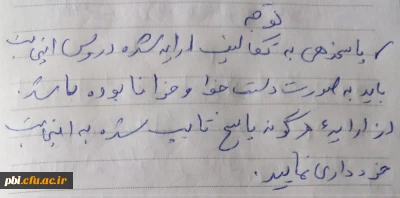 توجه
۱ پاسخدهی به تکالیف ارایه شده دروس اینجانب
باید به صورت دست خط و خوانا بوده باشد.
از ارایهٔ هرگونه پاسخ تایپ شده به اینجانب
خودداری نمایید.
pbi.cfu.ac.ir